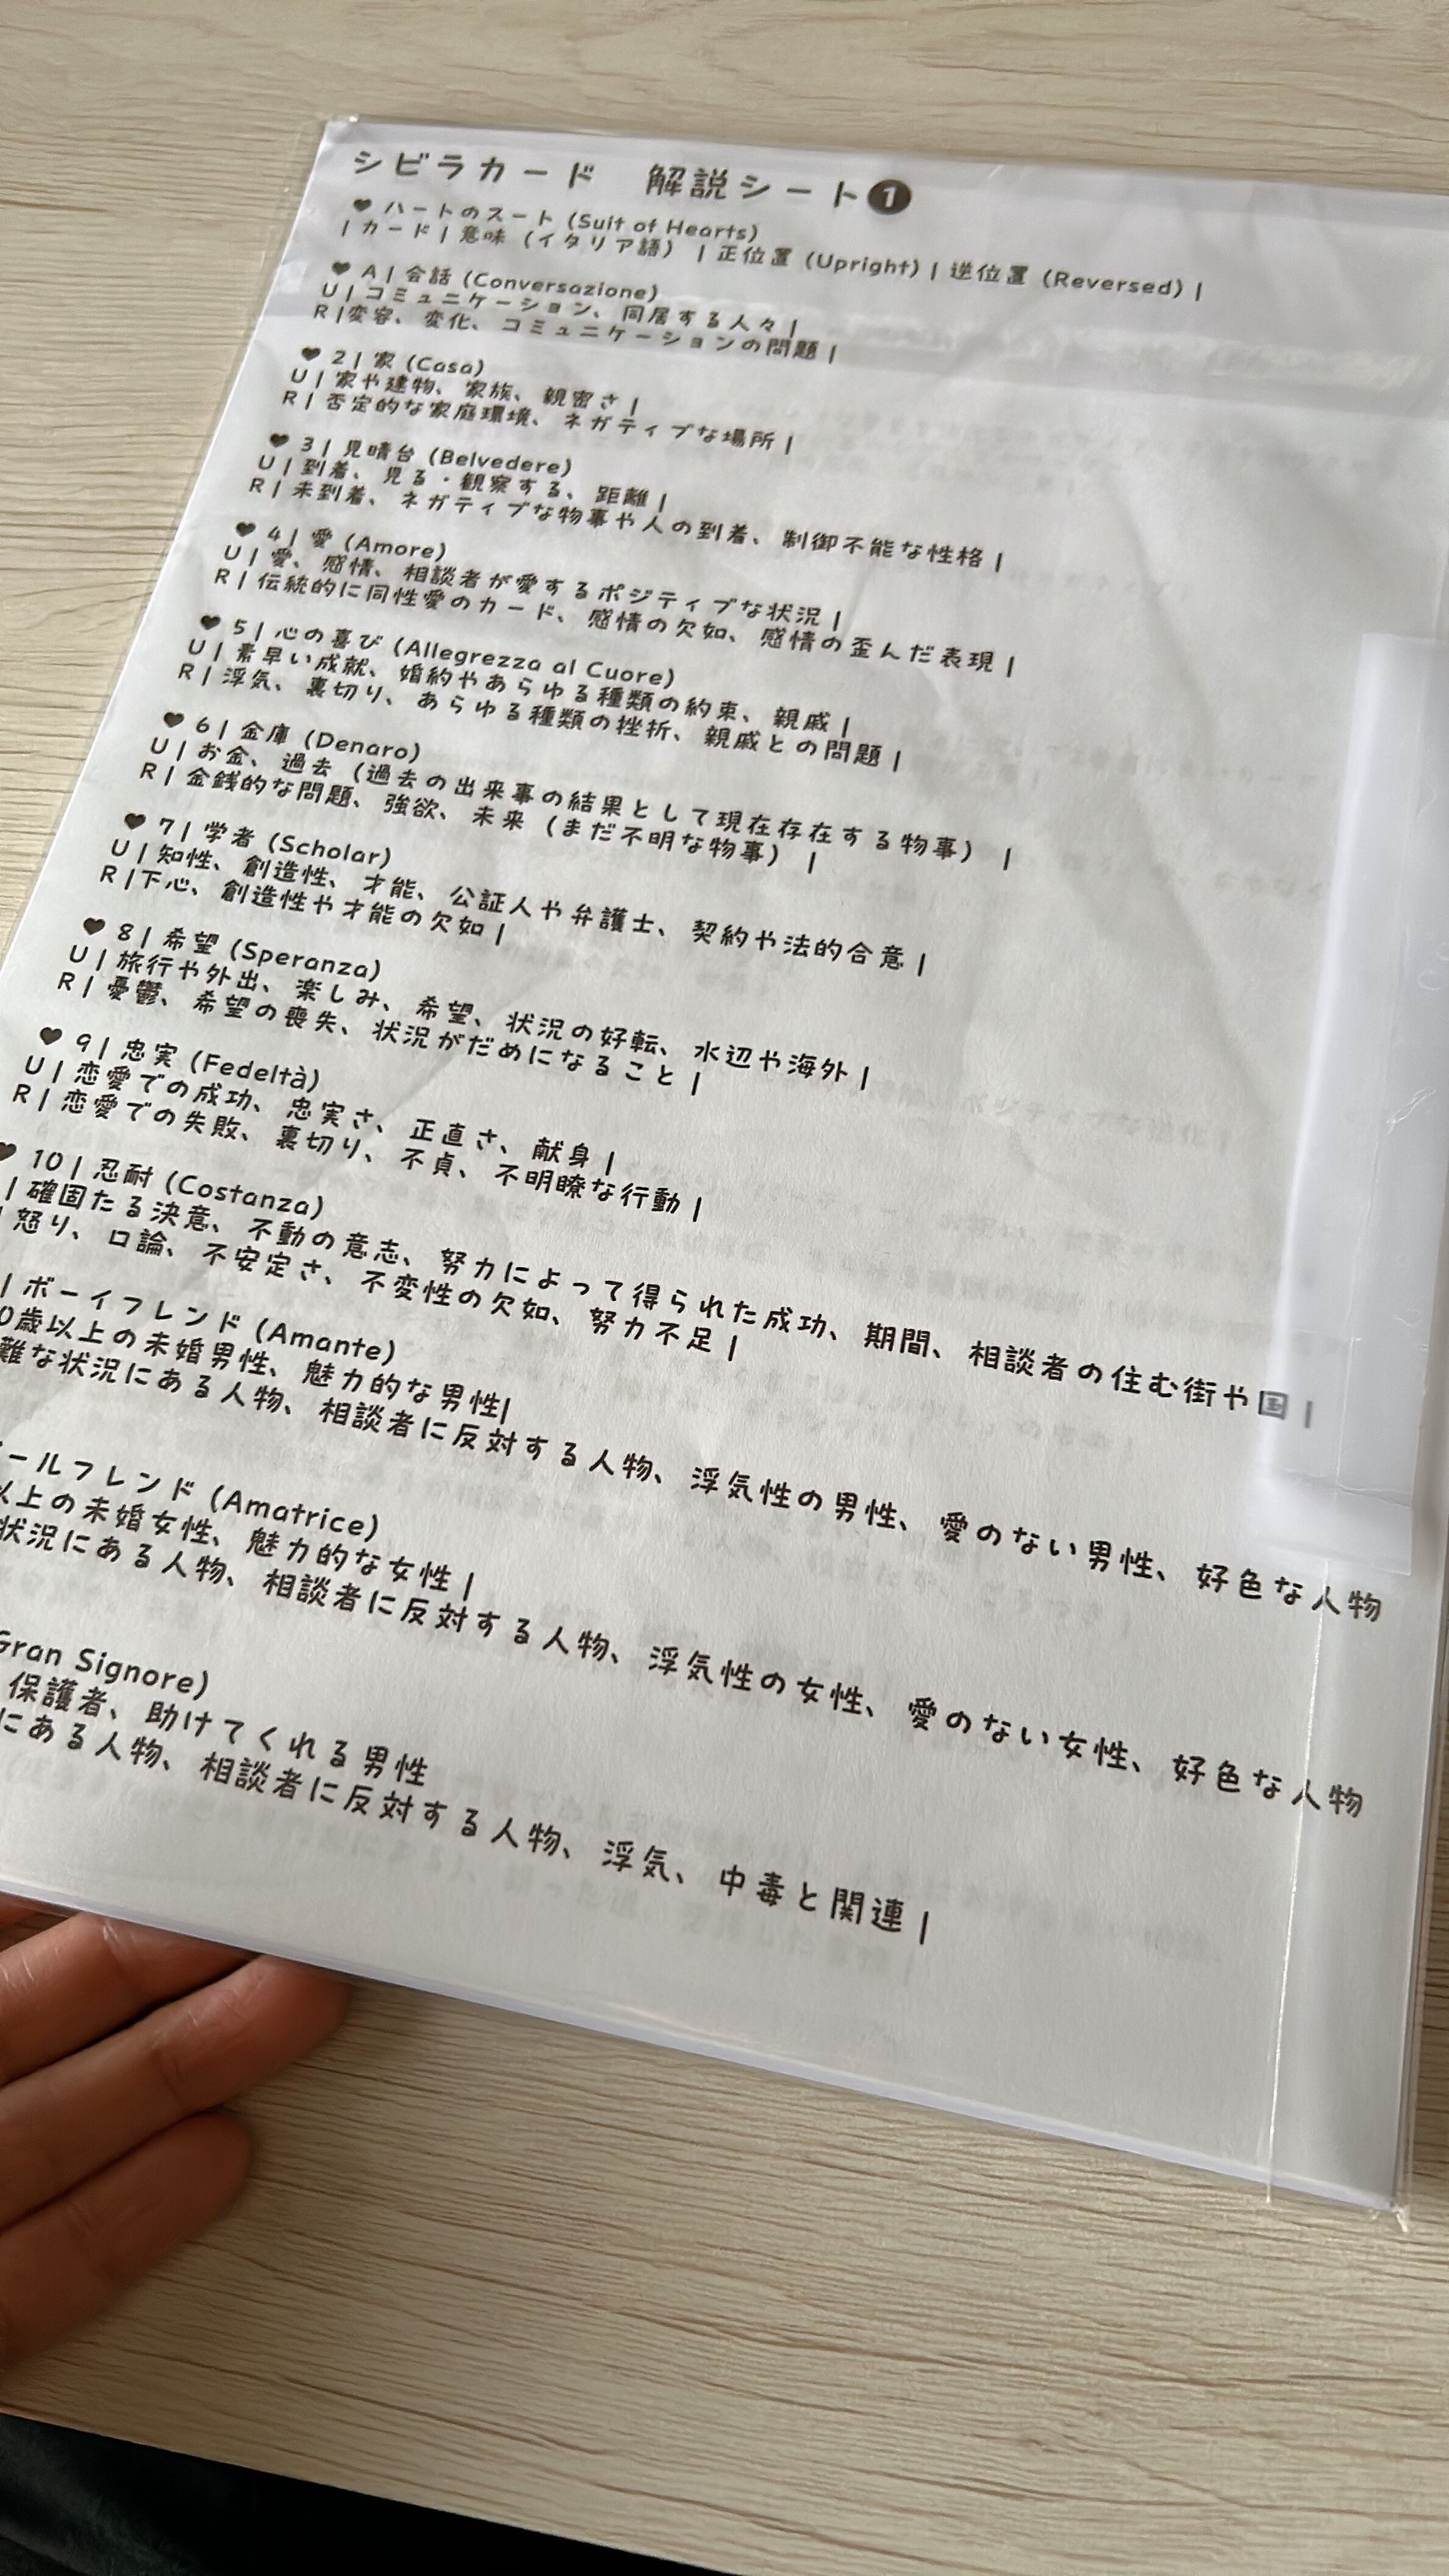 シビラカード　解説シート❶
♥ ハートのスート (Suit of Hearts)
| カード | 意味 (イタリア語) | 正位置 (Upright) | 逆位置 (Reversed) |
♥ A | 会話 (Conversazione)
U | コミュニケーション、同居する人々 |
R | 変容、変化、コミュニケーションの問題 |
♥ 2 | 家 (Casa)
U | 家や建物、家族、親密さ |
R | 否定的な家庭環境、ネガティブな場所 |
♥ 3 | 見晴台 (Belvedere)
U | 到着、見る・観察する、距離 |
R | 未到着、ネガティブな物事や人の到着、制御不能な性格 |
♥ 4 | 愛 (Amore)
U | 愛、感情、相談者が愛するポジティブな状況 |
R | 伝統的に同性愛のカード、感情の欠如、感情の歪んだ表現 |
♥ 5 | 心の喜び (Allegrezza al Cuore)
U | 素早い成就、婚約やあらゆる種類の約束、親戚 |
R | 浮気、裏切り、あらゆる種類の挫折、親戚との問題 |
♥ 6 | 金庫 (Denaro)
U | お金、過去 (過去の出来事の結果として現在存在する物事) |
R | 金銭的な問題、強欲、未来 (まだ不明な物事) |
♥ 7 | 学者 (Scholar)
U | 知性、創造性、才能、公証人や弁護士、契約や法的合意 |
R | 下心、創造性や才能の欠如 |
♥ 8 | 希望 (Speranza)
U | 旅行や外出、楽しみ、希望、状況の好転、水辺や海外 |
R | 憂鬱、希望の喪失、状況がだめになること |
♥ 9 | 忠実 (Fedeltà)
U | 恋愛での成功、忠実さ、正直さ、献身 |
R | 恋愛での失敗、裏切り、不貞、不明瞭な行動 |
♥ 10 | 忍耐 (Costanza)
| 確固たる決意、不動の意志、努力によって得られた成功、期間、相談者の住む街や国 |
怒り、口論、不安定さ、不変性の欠如、努力不足 |
| ボーイフレンド (Amante)
0歳以上の未婚男性、魅力的な男性|
難な状況にある人物、相談者に反対する人物、浮気性の男性、愛のない男性、好色な人物
ールフレンド (Amatrice)
以上の未婚女性、魅力的な女性 |
状況にある人物、相談者に反対する人物、浮気性の女性、愛のない女性、好色な人物
Gran Signore)
保護者、助けてくれる男性
にある人物、相談者に反対する人物、浮気、中毒と関連 |